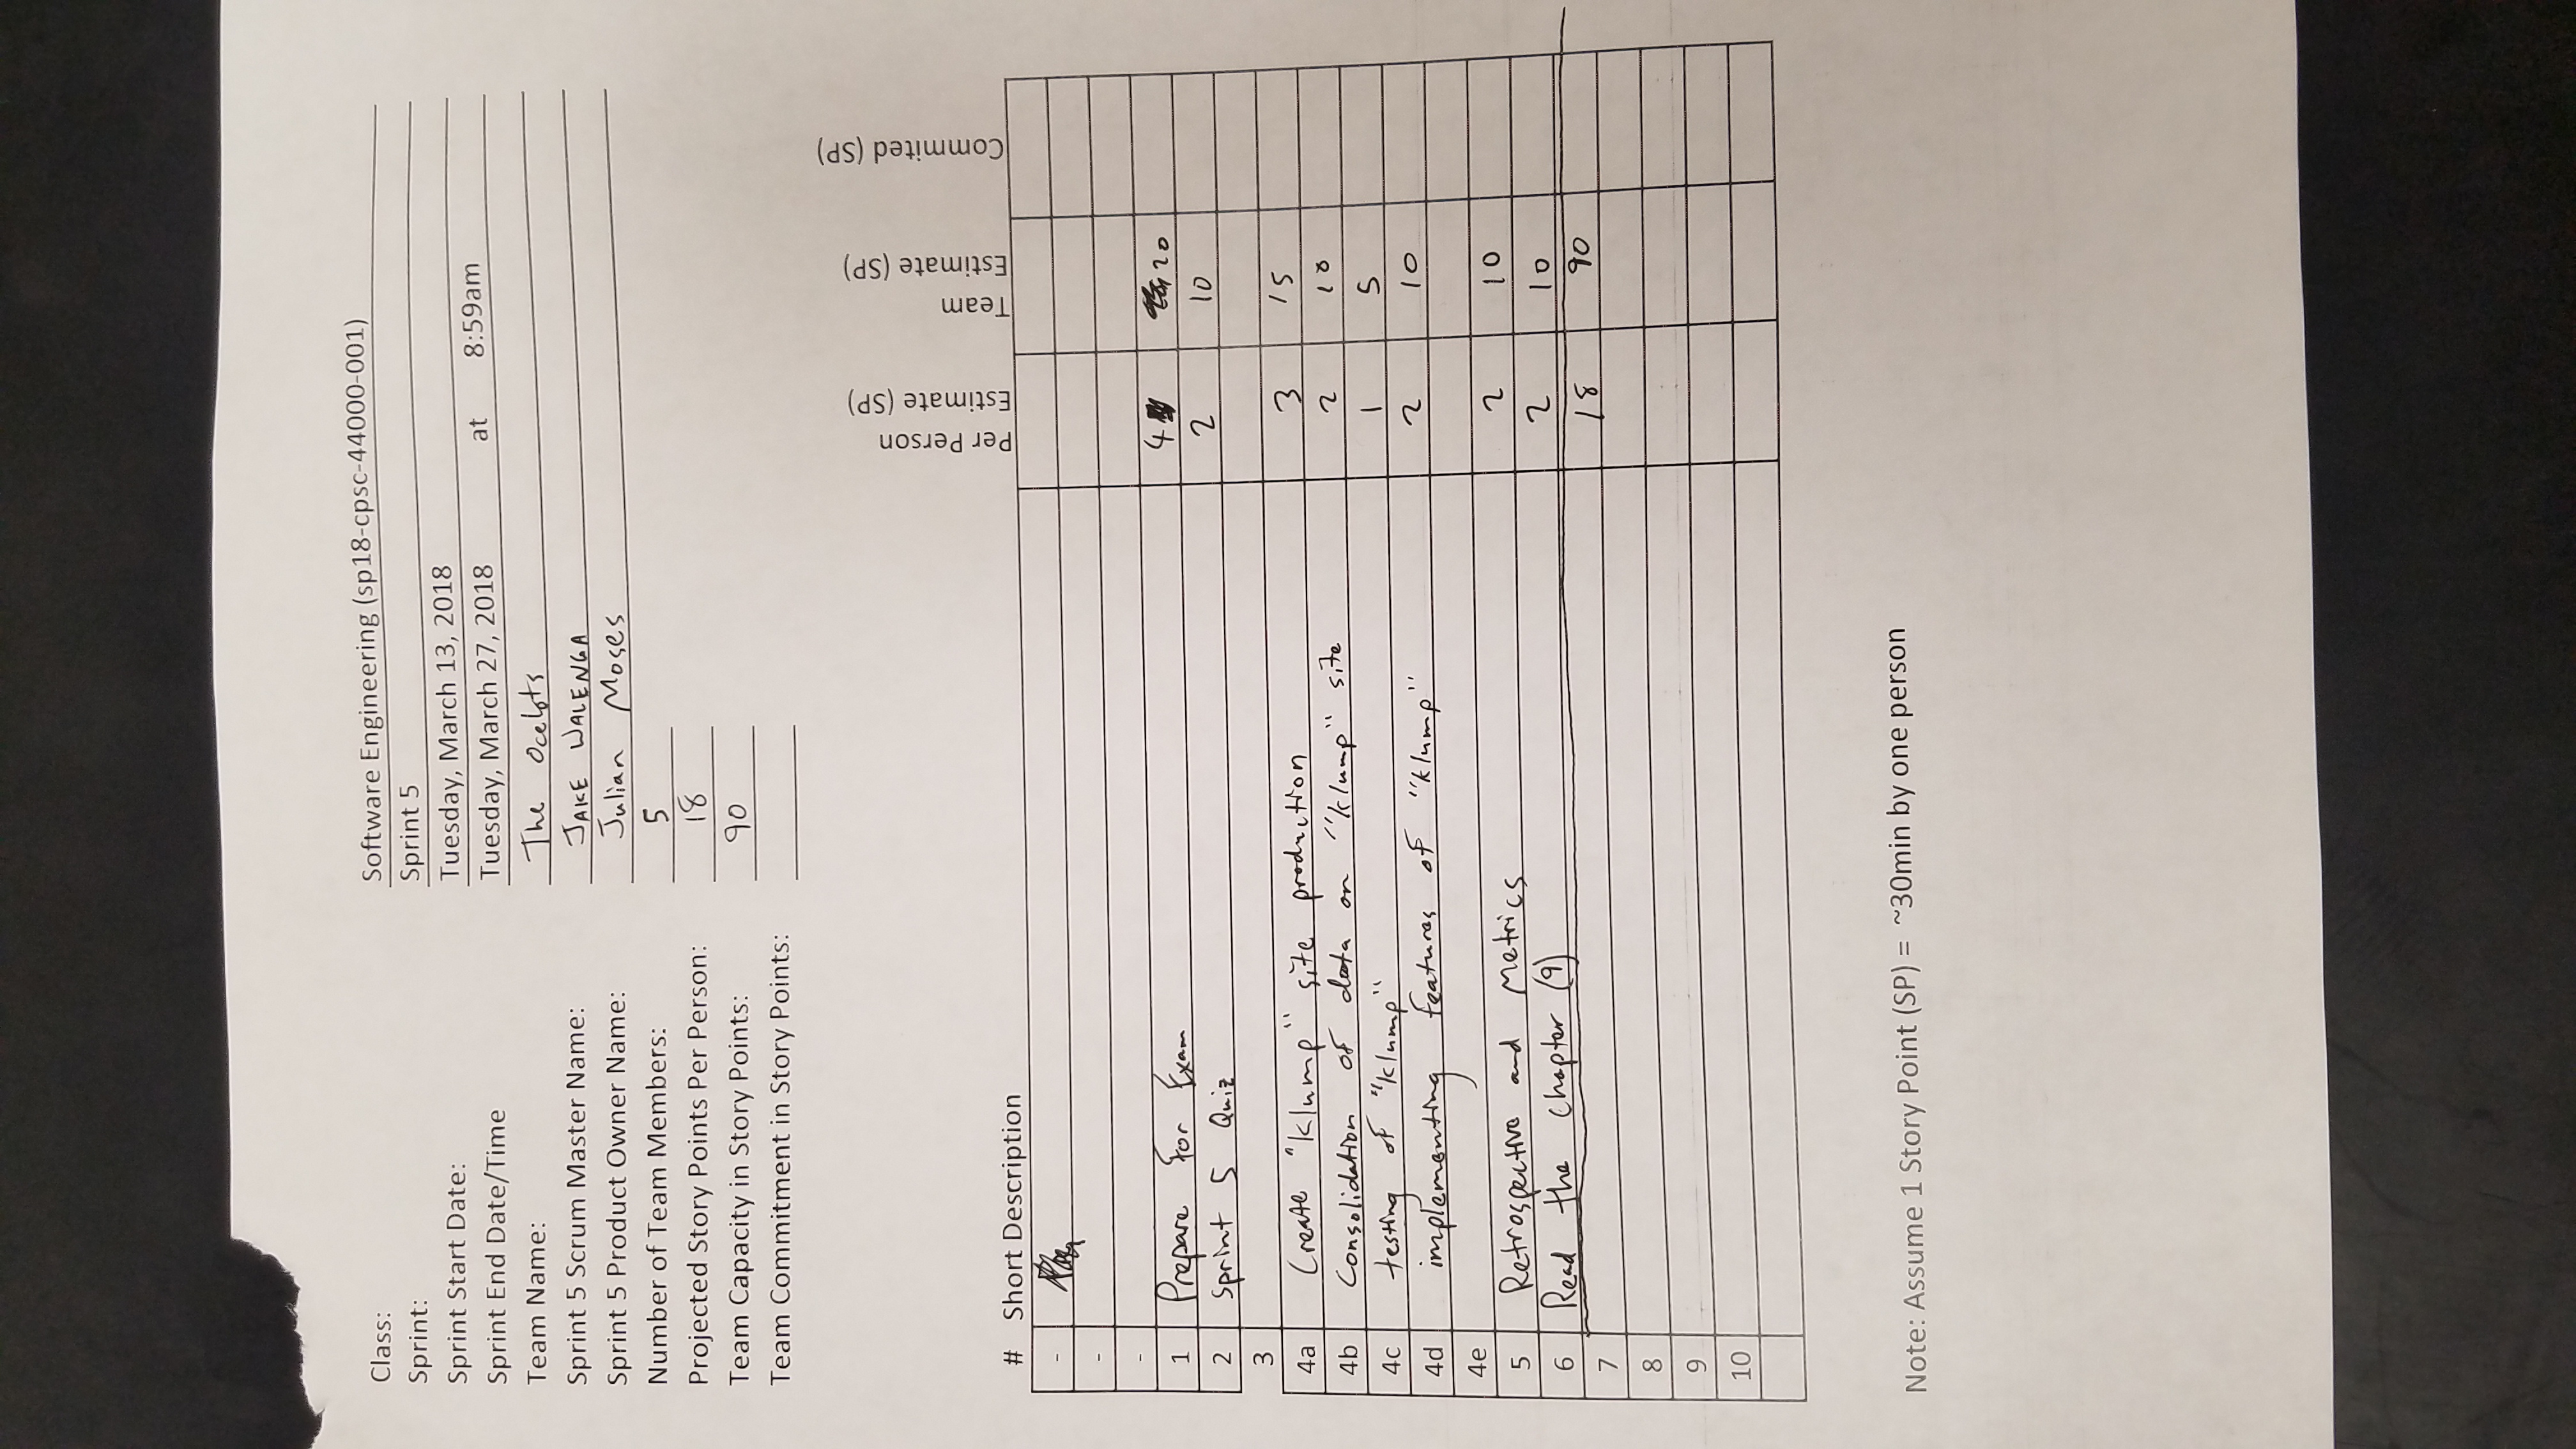 Class: Software Engineering (sp18-cpsc-44000-001)
Sprint: Sprint 5
Sprint Start Date: Tuesday, March 13, 2018
Sprint End Date/Time Tuesday, March 27, 2018 at 8:59am
Team Name: The Ocelots
Sprint 5 Scrum Master Name: JAKE WALENGA
Sprint 5 Product Owner Name: Julian Moses
Number of Team Members: 5
Projected Story Points Per Person: 18
Team Capacity in Story Points: 90
Team Commitment in Story Points:
# Short Description Per Person Estimate (SP) Team Estimate (SP) Commited (SP)
-
-
-
1 Prepare For Exam 4 20
2 Sprint 5 Quiz 2 10
3
4a Create "klump" site production 3 15
4b Consolidation of data on "klump" site 2 10
4c testing of "klump" 1 5
4d implementing features of "klump" 2 10
4e
5 Retrospective and Metrics 2 10
6 Read the chapter (9) 2 10
7 18 90
8
9
10
Note: Assume 1 Story Point (SP) = ~30min by one person